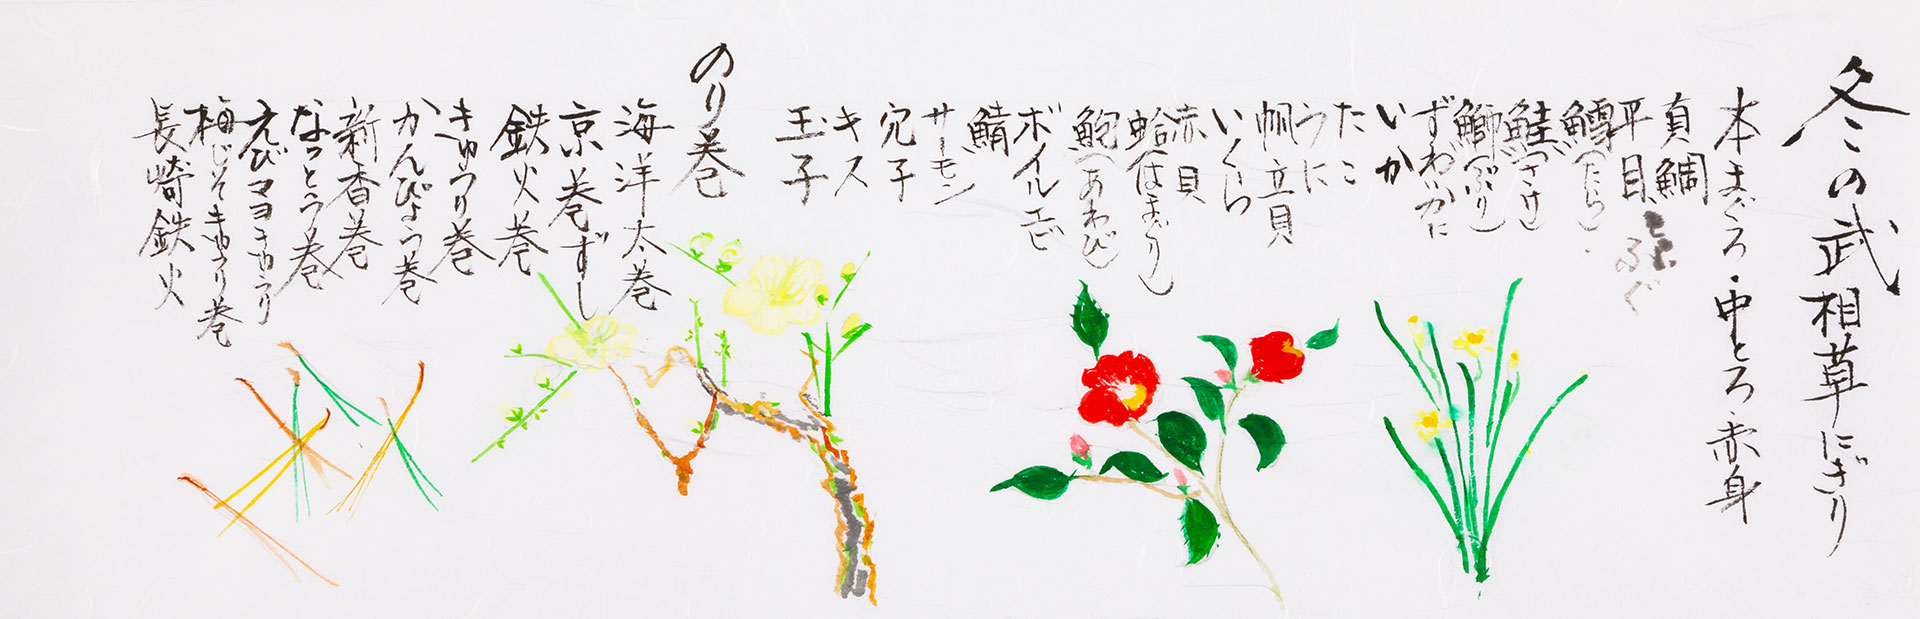 冬の武相草にぎり
本まぐろ・中とろ・赤身
真鯛
平目 ふぐ
鱈(たら)
鮭(さけ)
鰤(ぶり)
ずわいかに
いか
たこ
うに
帆立貝
いくら
赤貝
蛤(はまぐり)
鮑(あわび)
ボイルエビ
鯖
サーモン
穴子
キス
玉子
のり巻
海洋太巻
京巻ずし
鉄火巻
きゅうり巻
かんぴょう巻
新香巻
なっとう巻
えびマヨきゅうり
梅じそきゅうり巻
長崎鉄火